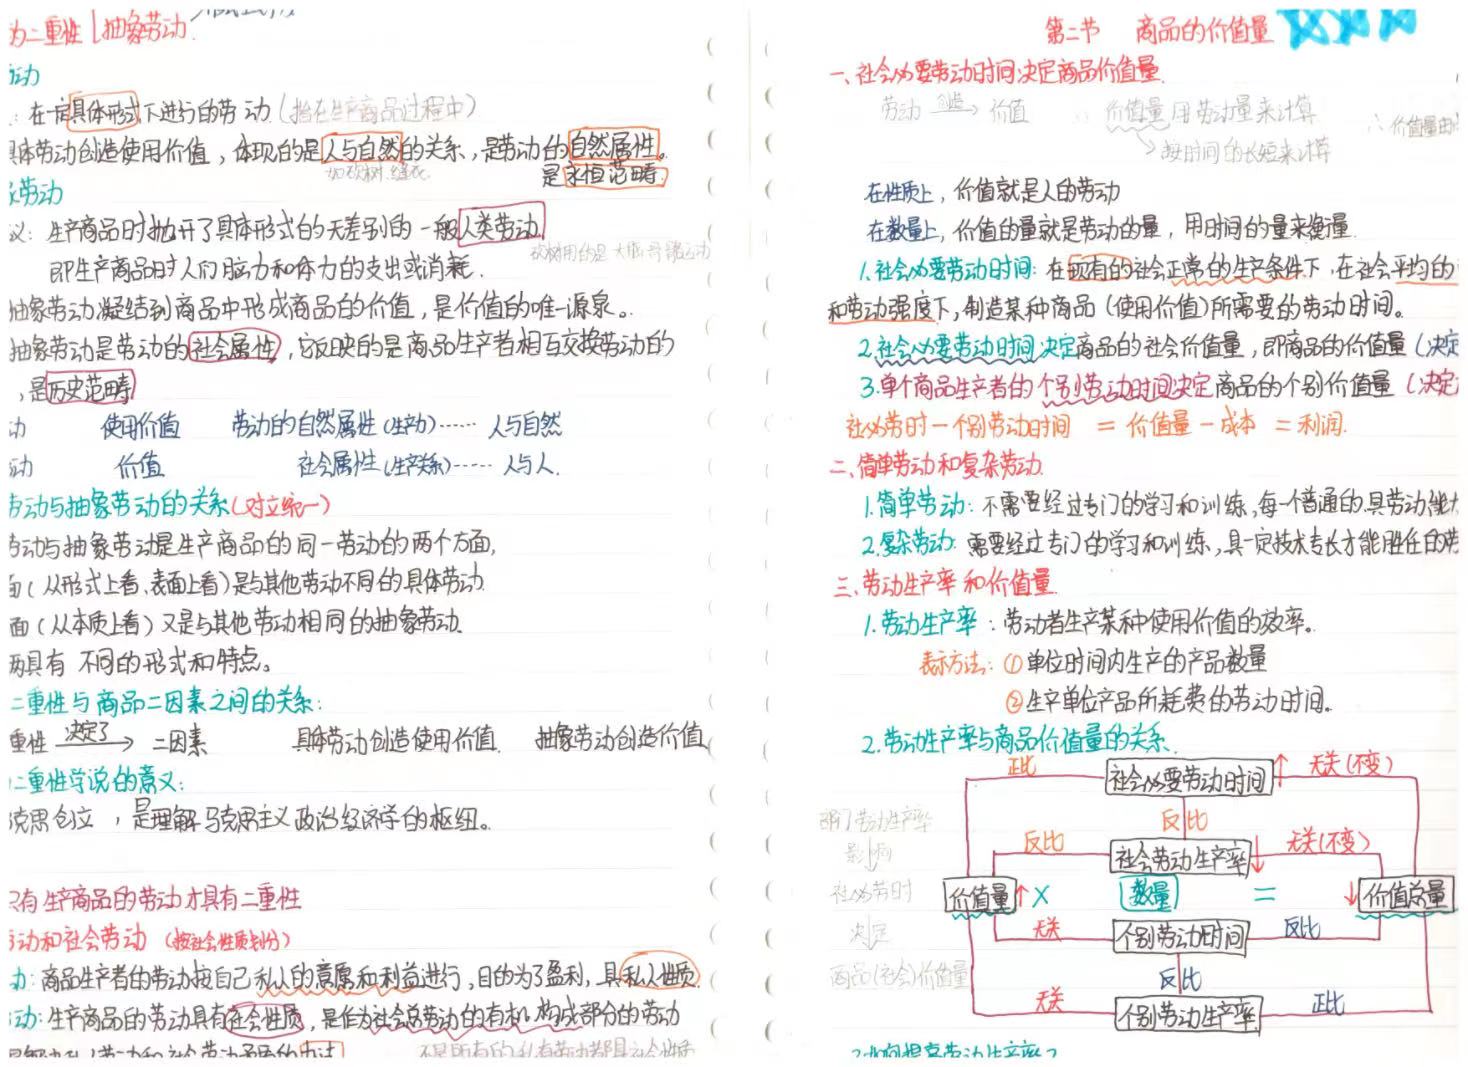 为二重性 抽象劳动.
动
:在一定具体形式下进行的劳动.(指在生产商品过程中)
具体劳动创造使用价值，体现的是人与自然的关系，是劳动的自然属性。
如砍树.缝衣. 是永恒范畴.
象劳动
义: 生产商品时抛开了具体形式的无差别的一般人类劳动.
即生产商品时人们脑力和体力的支出或消耗.
抽象劳动凝结到商品中形成商品的价值，是价值的唯一源泉。
抽象劳动是劳动的社会属性，它反映的是商品生产者相互交换劳动的
，是历史范畴
动 使用价值 劳动的自然属性(生产力)…… 人与自然
动 价值 社会属性(生产关系)…… 人与人.
劳动与抽象劳动的关系(对立统一)
劳动与抽象劳动是生产商品的同一劳动的两个方面,
面(从形式上看、表面上看)是与其他劳动不同的具体劳动.
面(从本质上看)又是与其他劳动相同的抽象劳动.
两具有 不同的形式和特点。
二重性与商品二因素之间的关系:
重性 决定了 二因素 具体劳动创造使用价值. 抽象劳动创造价值
二重性学说的意义:
克思创立 ，是理解马克思主义政治经济学的枢纽。
只有生产商品的劳动才具有二重性
劳动和社会劳动 (按社会性质划分)
动: 商品生产者的劳动按自己私人的意愿和利益进行，目的为了盈利，具私人性质.
动: 生产商品的劳动具有社会性质，是作为社会总劳动的有机构成部分的劳动
不是所有的私有劳动都具社会性质
第二节 商品的价值量
一、社会必要劳动时间决定商品价值量.
劳动 创造 价值 ∵ 价值量用劳动量来计算 ∴ 价值量由
按时间的长短来计算
在性质上，价值就是人的劳动
在数量上，价值的量就是劳动的量，用时间的量来衡量.
1.社会必要劳动时间: 在现有的社会正常的生产条件下，在社会平均的
和劳动强度下，制造某种商品(使用价值)所需要的劳动时间。
2.社会必要劳动时间决定商品的社会价值量，即商品的价值量(决定
3.单个商品生产者的个别劳动时间决定商品的个别价值量(决定
社必劳时－个别劳动时间 = 价值量－成本 = 利润.
二、简单劳动和复杂劳动.
1.简单劳动: 不需要经过专门的学习和训练,每一个普通的具劳动能力
2.复杂劳动: 需要经过专门的学习和训练,具一定技术专长才能胜任的劳
三、劳动生产率和价值量.
1.劳动生产率: 劳动者生产某种使用价值的效率。
表示方法: ①单位时间内生产的产品数量
②生产单位产品所耗费的劳动时间。
2.劳动生产率与商品价值量的关系.
正比 社会必要劳动时间 ↑ 无关(不变)
部门劳动生产率 反比
影响 反比 社会劳动生产率 ↓ 无关(不变)
社必劳时 价值量 ↑ × 数量 = ↓ 价值总量
决定 无关 个别劳动时间 反比
商品(社会)价值量 反比
无关 个别劳动生产率 正比
?如何提高劳动生产率?